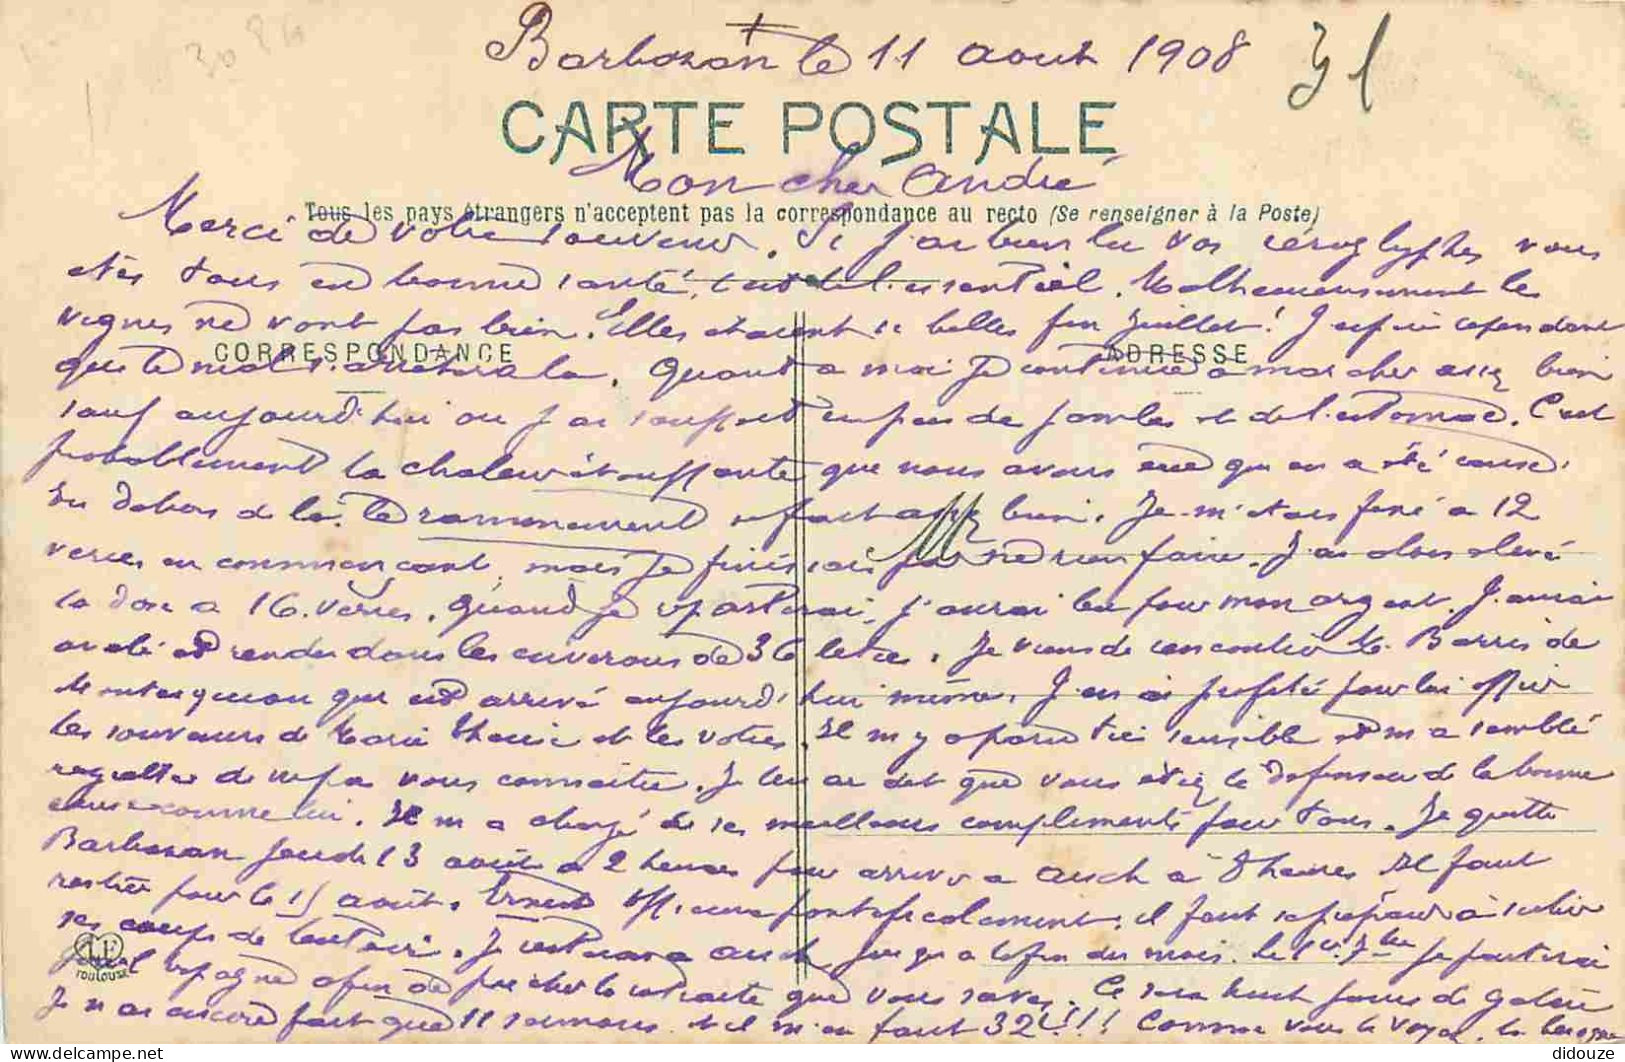 Barbazan le 11 aout 1908
31
CARTE POSTALE
Mon cher André
Tous les pays étrangers n'acceptent pas la correspondance au recto (Se renseigner à la Poste)
Merci de votre souvenir. Si j'ai bien lu vos iéroglyphes vous
êtes tous en bonne santé, c'est l'essentiel. Malheureusement les
vignes ne vont pas bien. Elles étaient si belles fin Juillet! J'espère cependant
CORRESPONDANCE
ADRESSE
que le mal s'arretera la. Quant a moi je continue a marcher assez bien
sauf aujourd'hui ou j'ai souffert un peu de jambes et de l'estomac. C'est
probablement la chaleur étouffante que nous avons eue qui en a été cause.
En dehors de la, le ramonement se fait assez bien. Je m'étais fixé a 12
verres en commençant, mais je finissais par ne rien faire. J'ai alors élevé
la dose a 16 verres. Quand je partirai, j'aurai bu pour mon argent. J'aurai
avalé et rendu dans les environs de 36 litres. Je viens de rencontrer M. Barris de
Montesquiou qui est arrivé aujourd'hui même. J'en ai profité pour lui offrir
les souvenirs de Marie Thérèse et les votres. Il m'y a paru très sensible et m'a semblé
regretter de ne pas vous connaitre. Je lui ai dit que vous étiez le défenseur de la bonne
cause comme lui. Il m'a chargé de ses meilleurs compliments pour tous. Je quitte
Barbazan jeudi 13 août a 2 heures pour arriver a Auch à 8 heures. Il faut
rester pour le 15 août. officiera pontificalement, il faut se préparer à subir
ses coups de. Je resterai a Auch jusqu'a la fin du mois. Le 1er 7bre je partirai
pour l'Espagne afin de prêcher la retraite que vous savez. Ce sera huit jours de galère
LF TOULOUSE
Je n'ai encore fait que 11 sermons et il m'en faut 32!!!! Comme vous le voyez, la besogne
didouze
delcampe.net